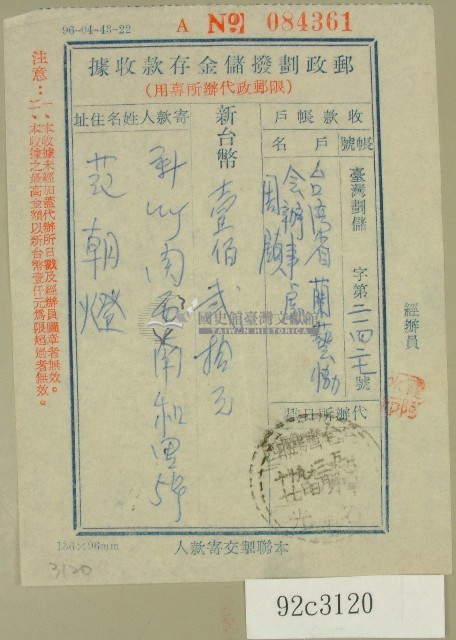 96-04-43-22
A No. 084361
郵政劃撥儲金存款收據
（限郵政代辦所專用）
收款帳戶
帳號
戶名
臺灣劃儲 字第二一四二七號
台灣省蘭藝協
會辦事處
周顏
新台幣 壹佰貳拾元
寄款人姓名住址
新竹
南和里5号
范朝燈
代辦所日戳
經辦員
注意：
一、本收據未經加蓋代辦所日戳及經辦員圖章者無效。
二、本收據之最高金額以新台幣壹仟元為限超過者無效。
本聯製交寄款人
136×96mm
國史館臺灣文獻館
TAIWAN HISTORICA
3120
92c3120